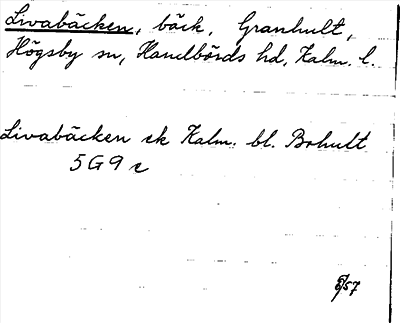 Livabäcken, bäck, Granhult,
Högsby sn, Handbörds hd, Kalm. l.
Livabäcken ek Kalm. bl. Bohult
5G9e
/57